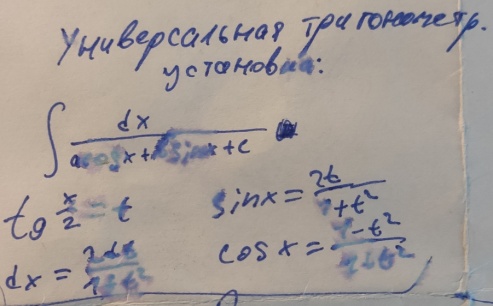 Универсальная тригонометр.
установка:
∫ dx / (a cos x + b sin x + c)
tg x/2 = t
sin x = 2t / (1+t²)
dx = 2dt / (1+t²)
cos x = (1-t²) / (1+t²)